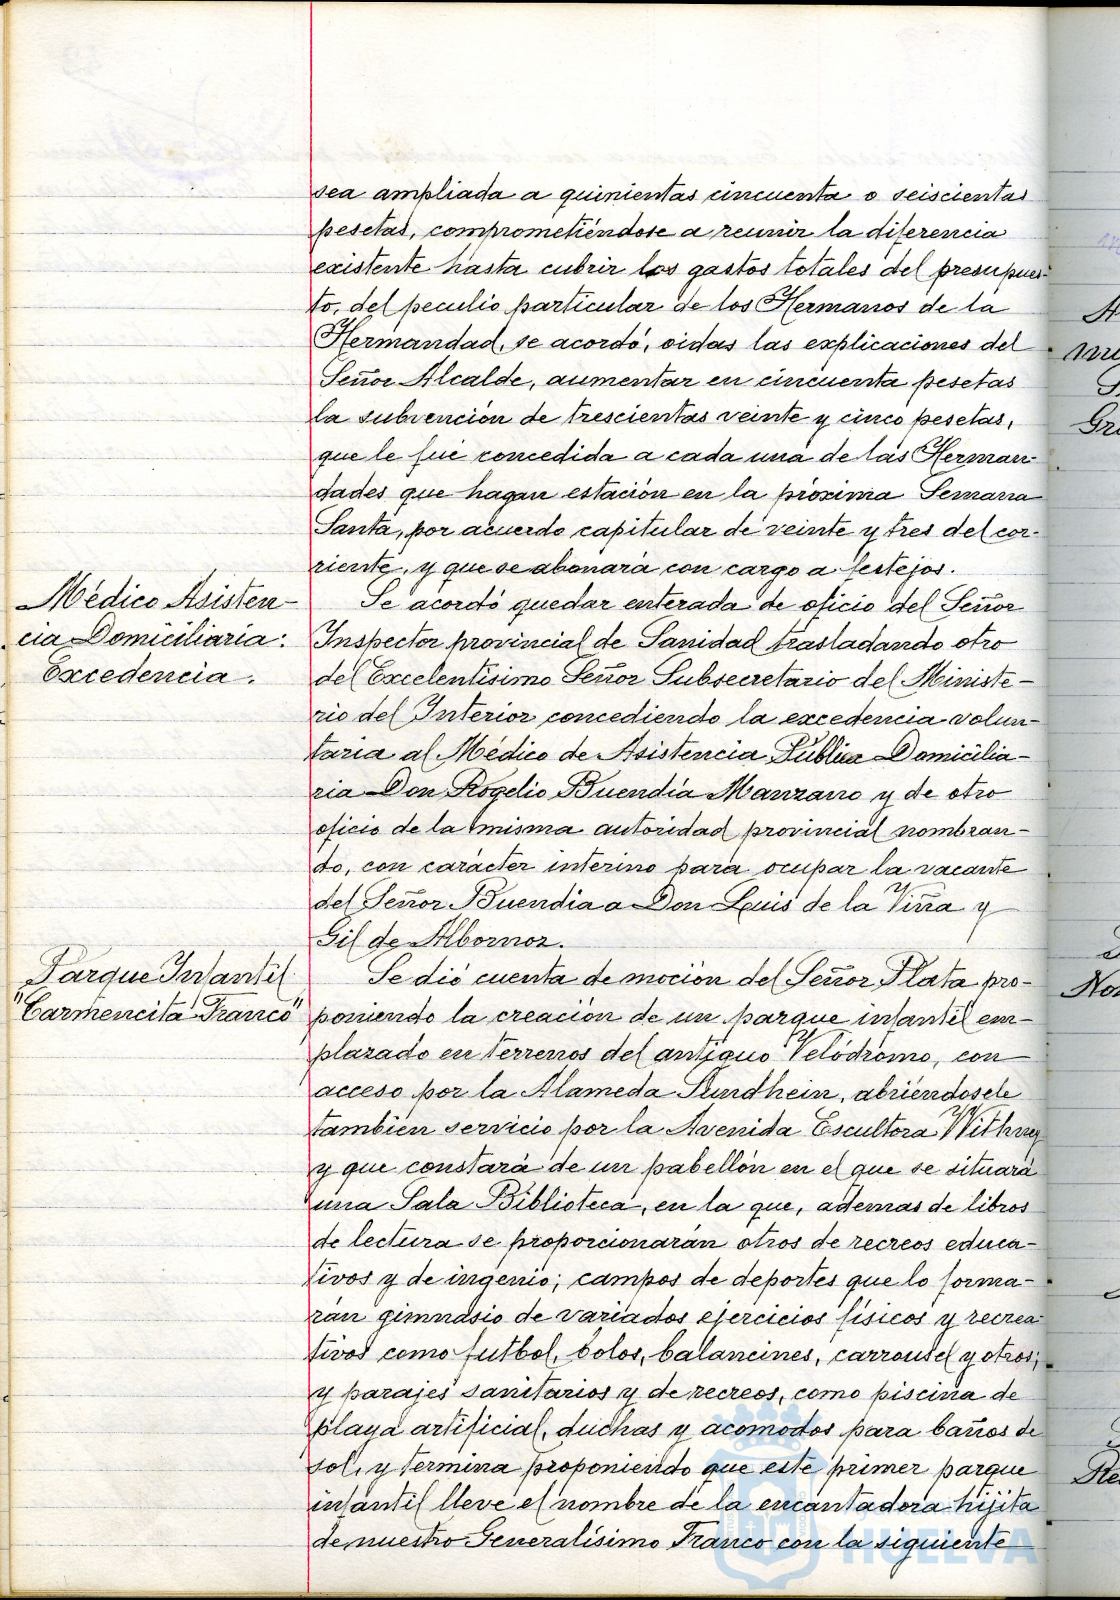 sea ampliada a quinientas cincuenta o seiscientas
pesetas, comprometiéndose a reunir la diferencia
existente hasta cubrir los gastos totales del presupues-
to, del peculio particular de los Hermanos de la
Hermandad, se acordó, oidas las explicaciones del
Señor Alcalde, aumentar en cincuenta pesetas
la subvención de trescientas veinte y cinco pesetas,
que le fué concedida a cada una de las Herman-
dades que hagan estación en la próxima Semana
Santa, por acuerdo capitular de veinte y tres del cor-
riente, y que se abonará con cargo a festejos.
Médico Asisten-
cia Domiciliaria:
Excedencia.
Se acordó quedar enterada de oficio del Señor
Inspector provincial de Sanidad trasladando otro
del Excelentísimo Señor Subsecretario del Ministe-
rio del Interior concediendo la excedencia volun-
taria al Médico de Asistencia Pública Domicilia-
ria Don Rogelio Buendía Manzano y de otro
oficio de la misma autoridad provincial nombran-
do, con carácter interino para ocupar la vacante
del Señor Buendia a Don Luis de la Viña y
Gil de Albornoz.
Parque Infantil
"Carmencita Franco"
Se dió cuenta de moción del Señor Plata pro-
poniendo la creación de un parque infantil em-
plazado en terrenos del antiguo Velódromo, con
acceso por la Alameda Sundhein, abriéndosele
tambien servicio por la Avenida Escultora Withney
y que constará de un pabellón en el que se situará
una Sala Biblioteca, en la que, ademas de libros
de lectura se proporcionarán otros de recreos educa-
tivos y de ingenio; campos de deportes que lo forma-
rán gimnasio de variados ejercicios físicos y recrea-
tivos como futbol, bolos, balancines, carrousel y otros;
y parajes sanitarios y de recreos, como piscina de
playa artificial, duchas y acomodos para baños de
sol, y termina proponiendo que este primer parque
infantil lleve el nombre de la encantadora hijita
de nuestro Generalísimo Franco con la siguiente
HUELVA